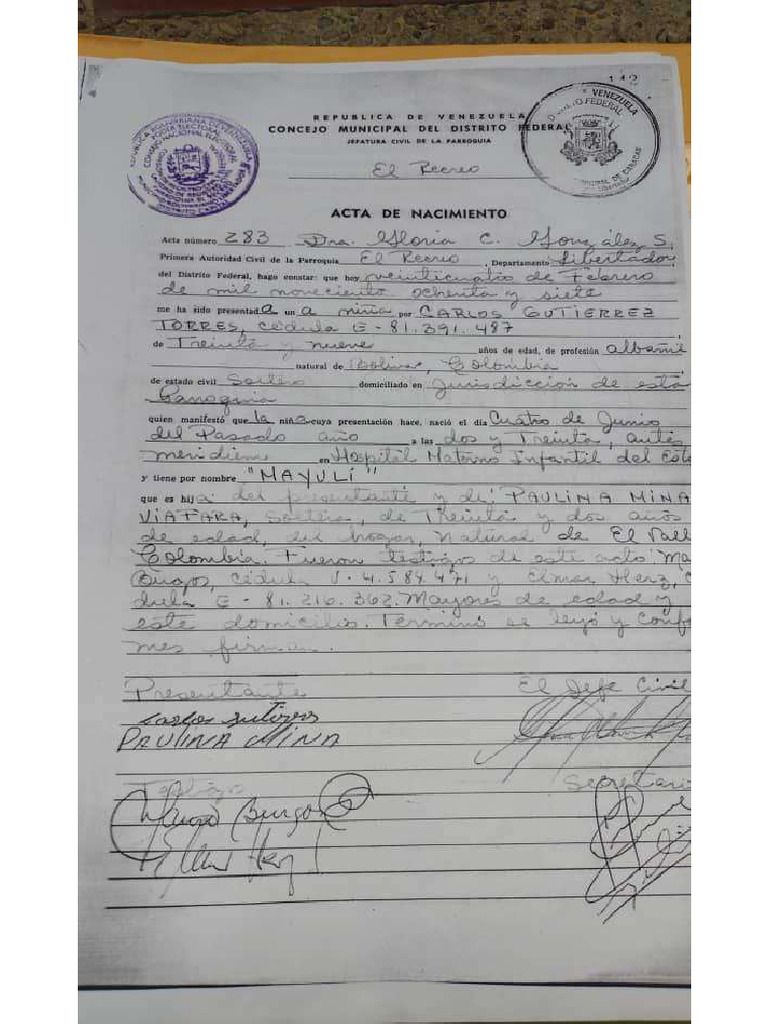 142
REPUBLICA DE VENEZUELA
CONCEJO MUNICIPAL DEL DISTRITO FEDERAL
JEFATURA CIVIL DE LA PARROQUIA
El Recreo
ACTA DE NACIMIENTO
Acta número 283 Dra. Gloria C. González S.
Primera Autoridad Civil de la Parroquia El Recreo, Departamento Libertador
del Distrito Federal, hago constar: que hoy veinticuatro de Febrero
de mil noveciento ochenta y siete
me ha sido presentada una niña por CARLOS GUTIERREZ
TORRES, cédula E-81.391.487
de Treinta y nueve años de edad, de profesión albañil
natural de Bolivar, Colombia
de estado civil Soltero domiciliado en jurisdiccion de esta
Parroquia
quien manifestó que la niña cuya presentación hace, nació el día Cuatro de Junio
del Pasado año a las dos y Treinta, antes
meridiem en Hospital Materno Infantil del Este
y tiene por nombre "MAYULI"
que es hija del presentante y de PAULINA MINA
VIAFARA, Soltera, de Treinta y dos años
de edad, del hogar, natural de El Vall
Colombia. Fueron testigos de este acto: Ma
Burgos, cédula V-4.584.471 y Elmar Herz, C
dula E-81.216.362. Mayores de edad y
este domicilio. Terminó se leyó y confo
mes firman.
Presentante El Jefe Civil
PAULINA MINA
Testigo Secretari
Burgos